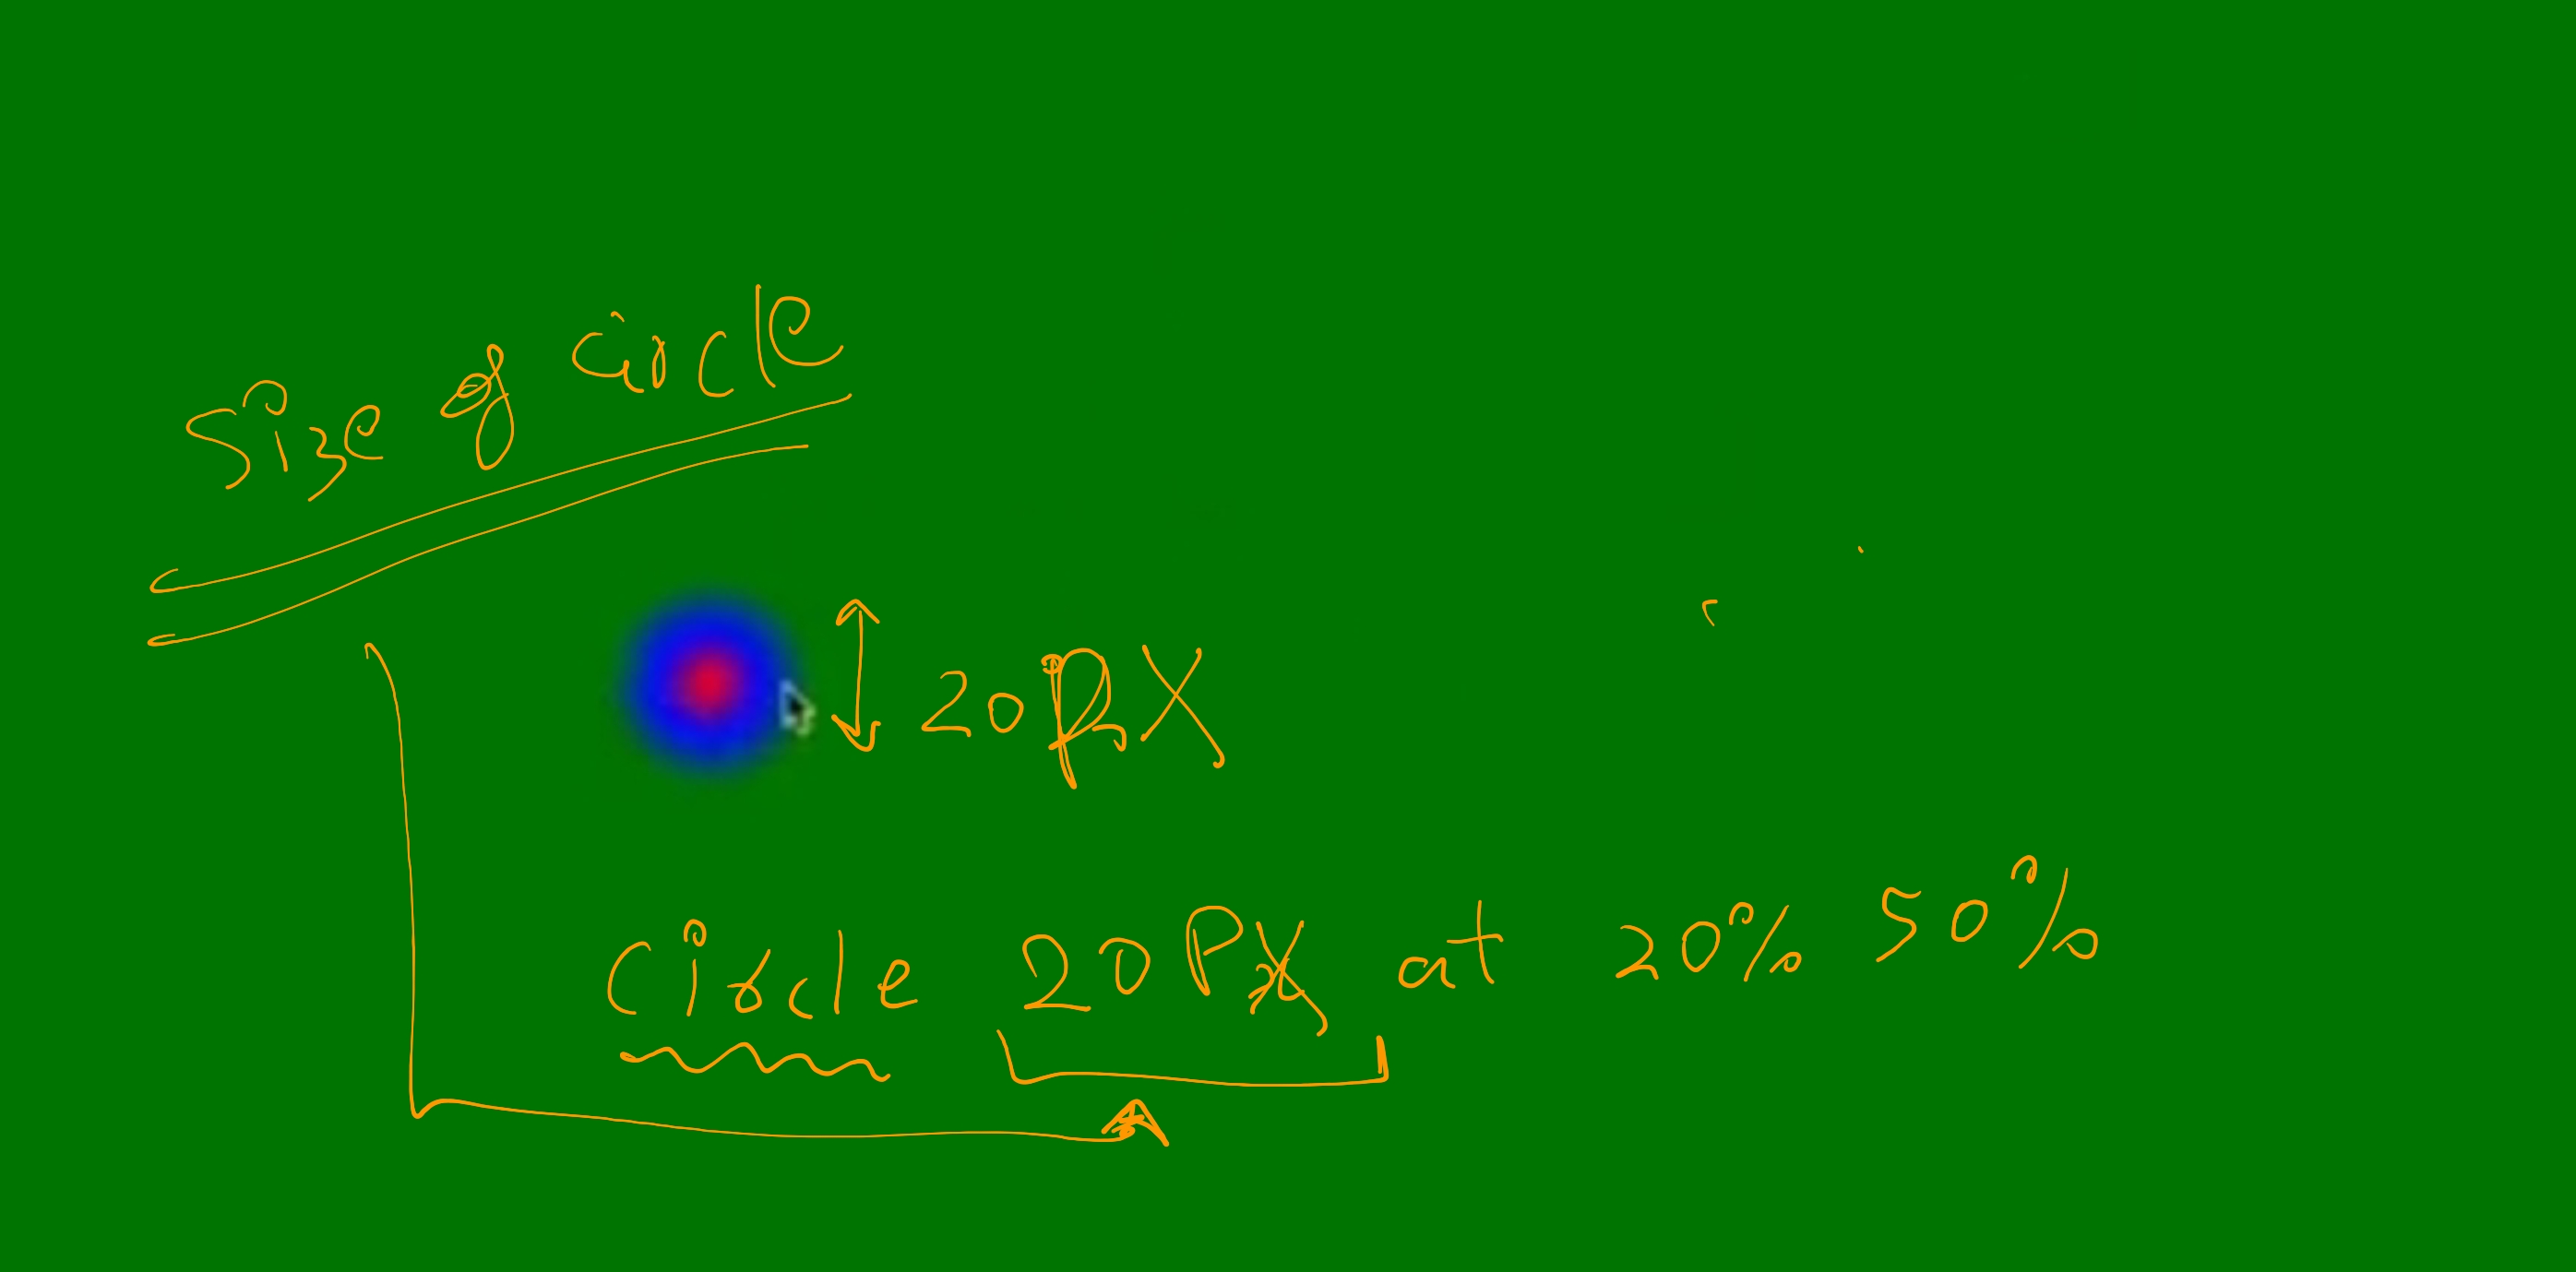 Size of circle
20px
Circle 20Px at 20% 50%